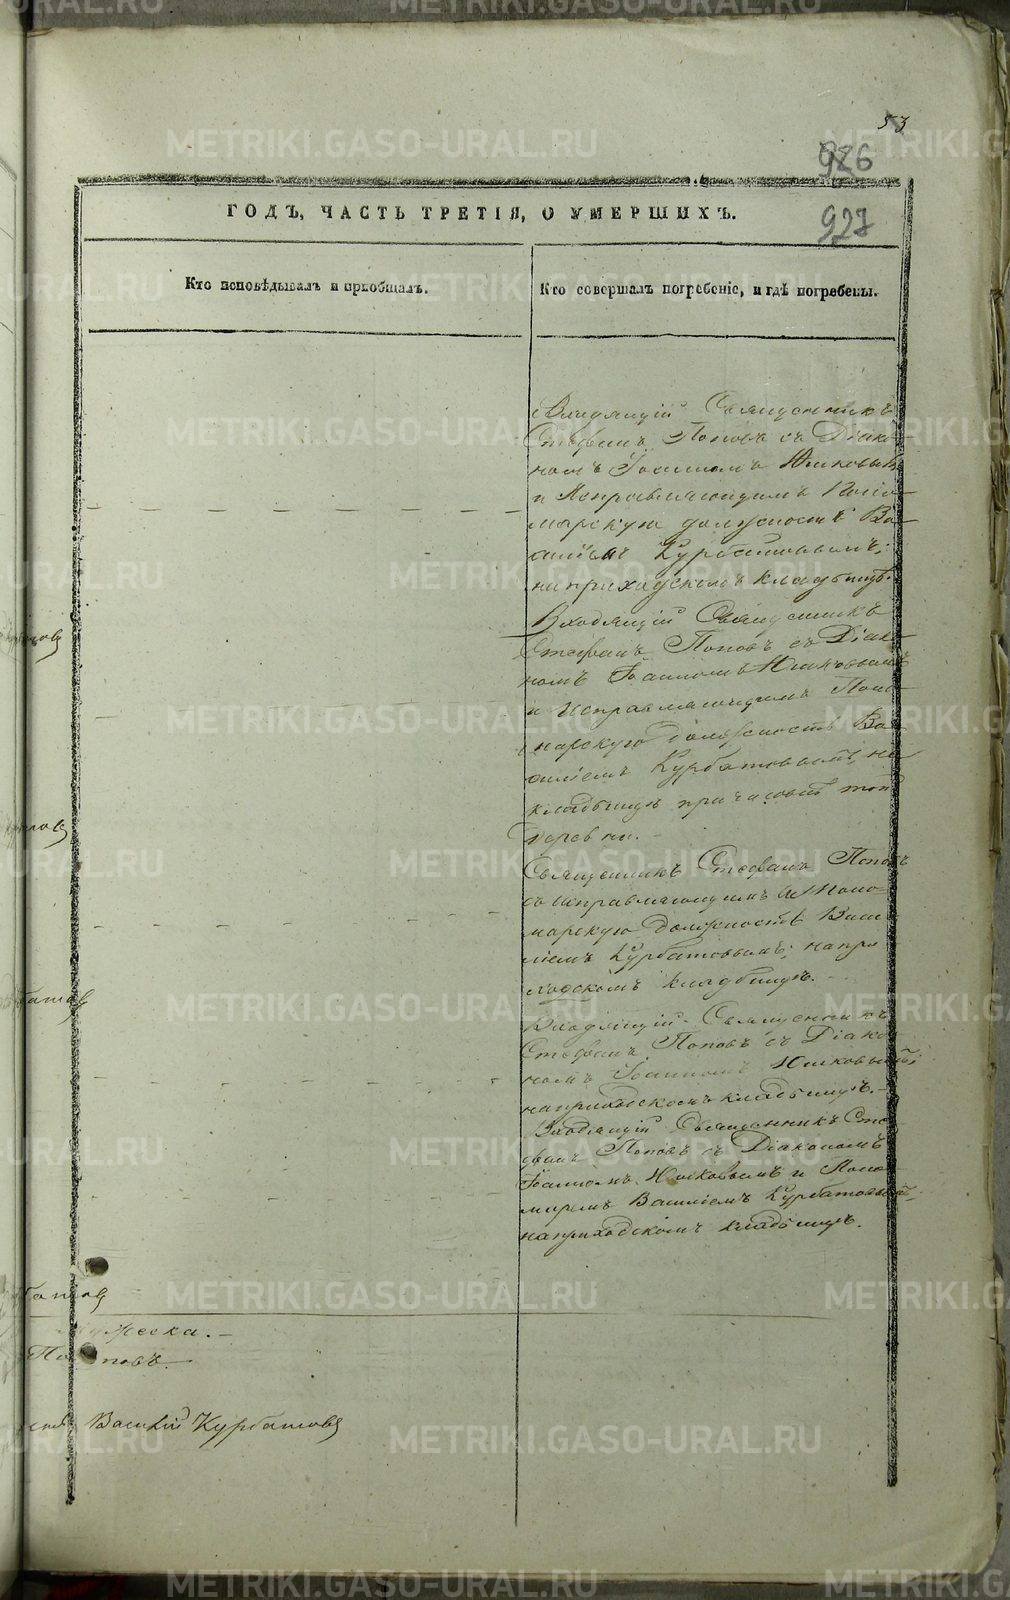 53
926
927
ГОДЪ, ЧАСТЬ ТРЕТІЯ, О УМЕРШИХЪ.
Кто исповѣдывалъ и пріобщалъ.
Кто совершалъ погребеніе, и гдѣ погребены.
Входящій Священникъ
Стефанъ Поповъ съ Діако-
номъ Іоанномъ
и Исправляющимъ Поно-
марскую должность Ва-
силіемъ Курбатовымъ;
на приходскомъ кладбищѣ.
Входящій Священникъ
Стефанъ Поповъ съ Діако-
номъ Іоанномъ
и Исправляющимъ Поно-
марскую должность Ва-
силіемъ Курбатовымъ, на
кладбищѣ при часовнѣ той
деревни.
Священникъ Стефанъ Поповъ
съ исправляющимъ Поно-
марскую должность Васи-
ліемъ Курбатовымъ; на при-
ходскомъ кладбищѣ.
Входящій Священникъ
Стефанъ Поповъ съ Діако-
номъ Іоанномъ
на приходскомъ кладбищѣ.
Входящій Священникъ Сте-
фанъ Поповъ съ Діакономъ
Іоанномъ и Поно-
маремъ Василіемъ Курбатовымъ;
на приходскомъ кладбищѣ.
Поповъ.
Василій Курбатовъ
METRIKI.GASO-URAL.RU